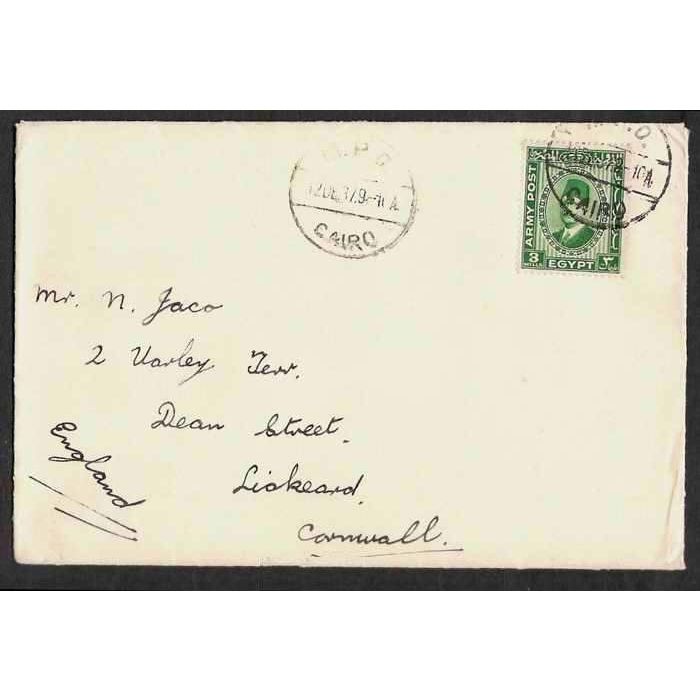 M.P.O
12 DE 37.9-10A
CAIRO
ARMY POST
3
MILLS
EGYPT
CAIRO
Mr. N. Jaco
2 Varley Terr.
Dean Street.
Liskeard.
Cornwall.
England